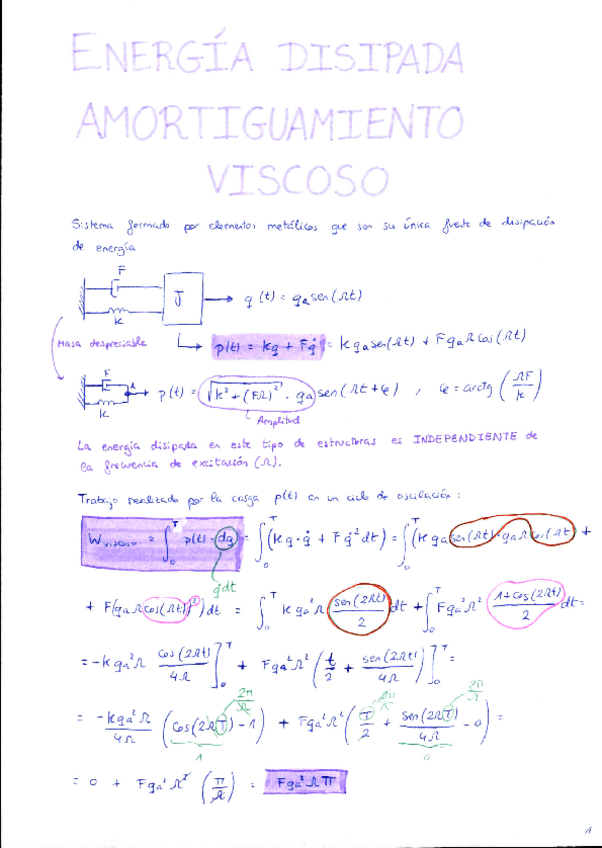 ENERGÍA DISIPADA
AMORTIGUAMIENTO
VISCOSO
Sistema formado por elementos metálicos que son su única fuente de disipación
de energía
F
K
J
q(t) = qₐ sen(Ωt)
Masa despreciable
p(t) = kq + Fq̇ = K qₐ sen(Ωt) + F qₐ Ω cos(Ωt)
F
K
A
p(t) = √(k² + (FΩ)²) · qₐ sen(Ωt + φ) , φ = arctg (ΩF/k)
Amplitud
La energía disipada en este tipo de estructuras es INDEPENDIENTE de
la frecuencia de excitación (Ω).
Trabajo realizado por la carga p(t) en un ciclo de oscilación:
W viscoso = ∫₀ᵀ p(t) · dq = ∫₀ᵀ (kq · q̇ + F q̇² dt) = ∫₀ᵀ (K qₐ sen(Ωt) · qₐ Ω cos(Ωt) +
q̇dt
+ F(qₐ Ω cos(Ωt))²) dt = ∫₀ᵀ K qₐ² Ω sen(2Ωt)/2 dt + ∫₀ᵀ F qₐ² Ω² (1 + cos(2Ωt))/2 dt =
= -K qₐ² cos(2Ωt)/4Ω ]₀ᵀ + F qₐ² Ω² (t/2 + sen(2Ωt)/4Ω) ]₀ᵀ =
2π/Ω 2π/Ω 2π/Ω
= -k qₐ² Ω/4Ω (cos(2ΩT) - 1) + F qₐ² Ω² (T/2 + sen(2ΩT)/4Ω - 0) =
1 0
= 0 + F qₐ² Ω² (π/Ω) = F qₐ² Ω π
1